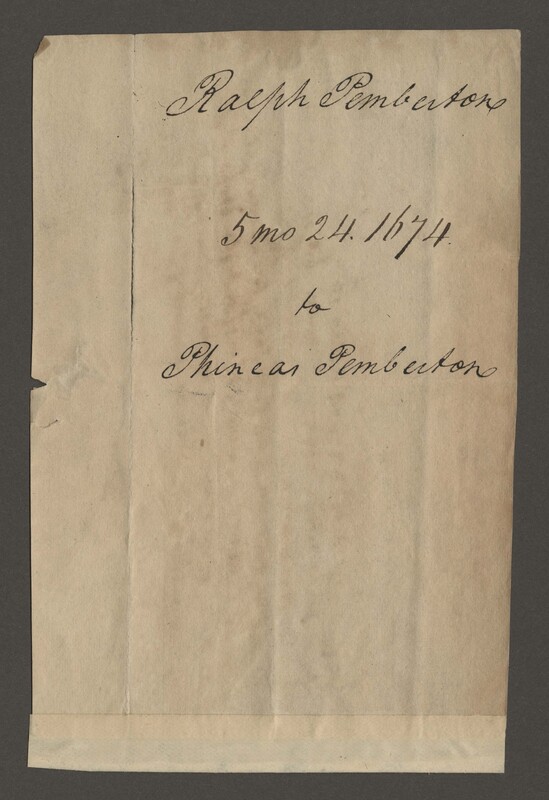 Ralph Pemberton
5 mo 24. 1674.
to
Phineas Pemberton